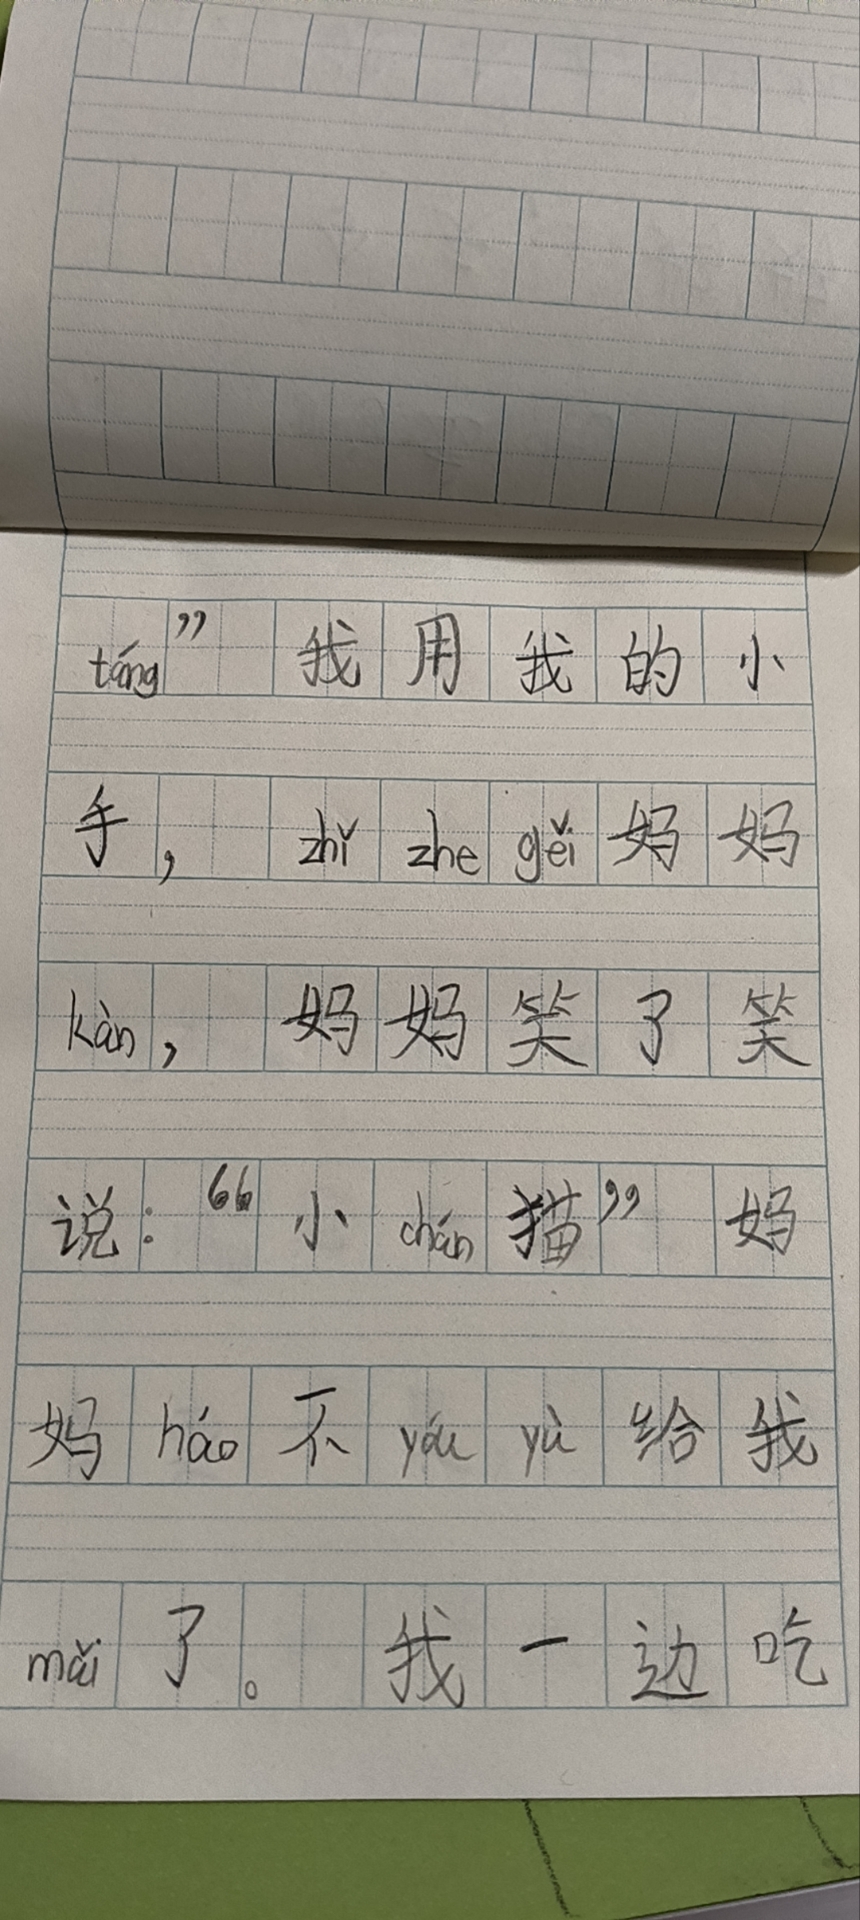 táng” 我用我的小
手， zhǐ zhe gěi 妈妈
kàn， 妈妈笑了笑
说：“小 chán 猫” 妈
妈 háo 不 yóu yù 给我
mǎi 了。 我一边吃